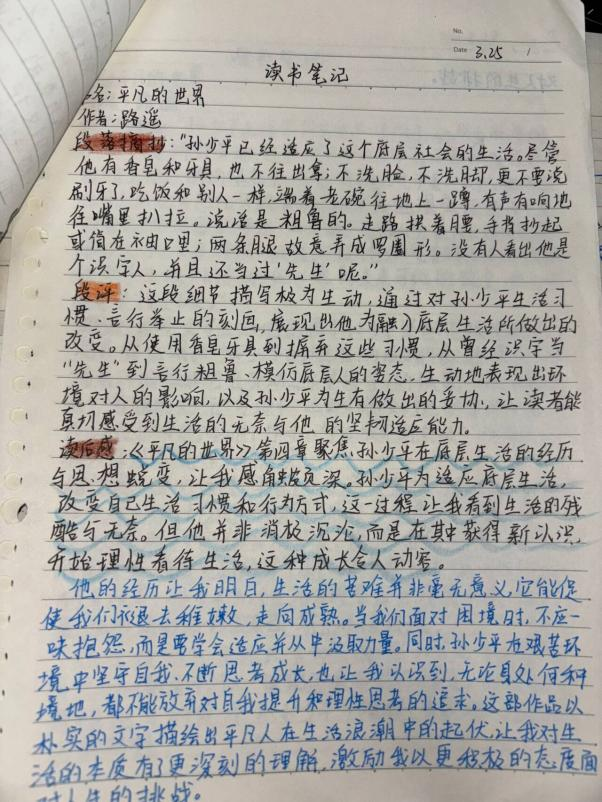 No.
Date 3.25 1
读书笔记
名:平凡的世界
作者:路遥
段落摘抄:"孙少平已经适应了这个底层社会的生活。尽管
他有香皂和牙具,也不往出拿;不洗脸,不洗脚,更不要说
刷牙了,吃饭和别人一样,端着老碗往地上一蹲,有声有响地
往嘴里扒拉。说话是粗鲁的。走路拱着腰,手背抄起
或筒在袖口里;两条腿故意弄成罗圈形。没有人看出他是
个识字人,并且还当过'先生'呢。"
段评:这段细节描写极为生动,通过对孙少平生活习
惯、言行举止的刻画,展现出他为融入底层生活所做出的
改变。从使用香皂牙具到摒弃这些习惯,从曾经识字当
"先生"到言行粗鲁、模仿底层人的姿态,生动地表现出环
境对人的影响,以及孙少平为生存做出的妥协,让读者能
真切感受到生活的无奈与他的坚韧适应能力。
读后感:《平凡的世界》第四章聚焦孙少平在底层生活的经历
与思想蜕变,让我感触颇深。孙少平为适应底层生活,
改变自己生活习惯和行为方式,这一过程让我看到生活的残
酷与无奈。但他并非消极沉沦,而是在其中获得新认识,
开始理性看待生活,这种成长令人动容。
他的经历让我明白,生活的苦难并非毫无意义,它能促
使我们褪去稚嫩,走向成熟。当我们面对困境时,不应一
味抱怨,而是要学会适应并从中汲取力量。同时,孙少平在艰苦环
境中坚守自我、不断思考成长,也让我认识到,无论身处何种
境地,都不能放弃对自我提升和理性思考的追求。这部作品以
朴实的文字描绘出平凡人在生活浪潮中的起伏,让我对生
活的本质有了更深刻的理解,激励我以更积极的态度面
对人生的挑战。